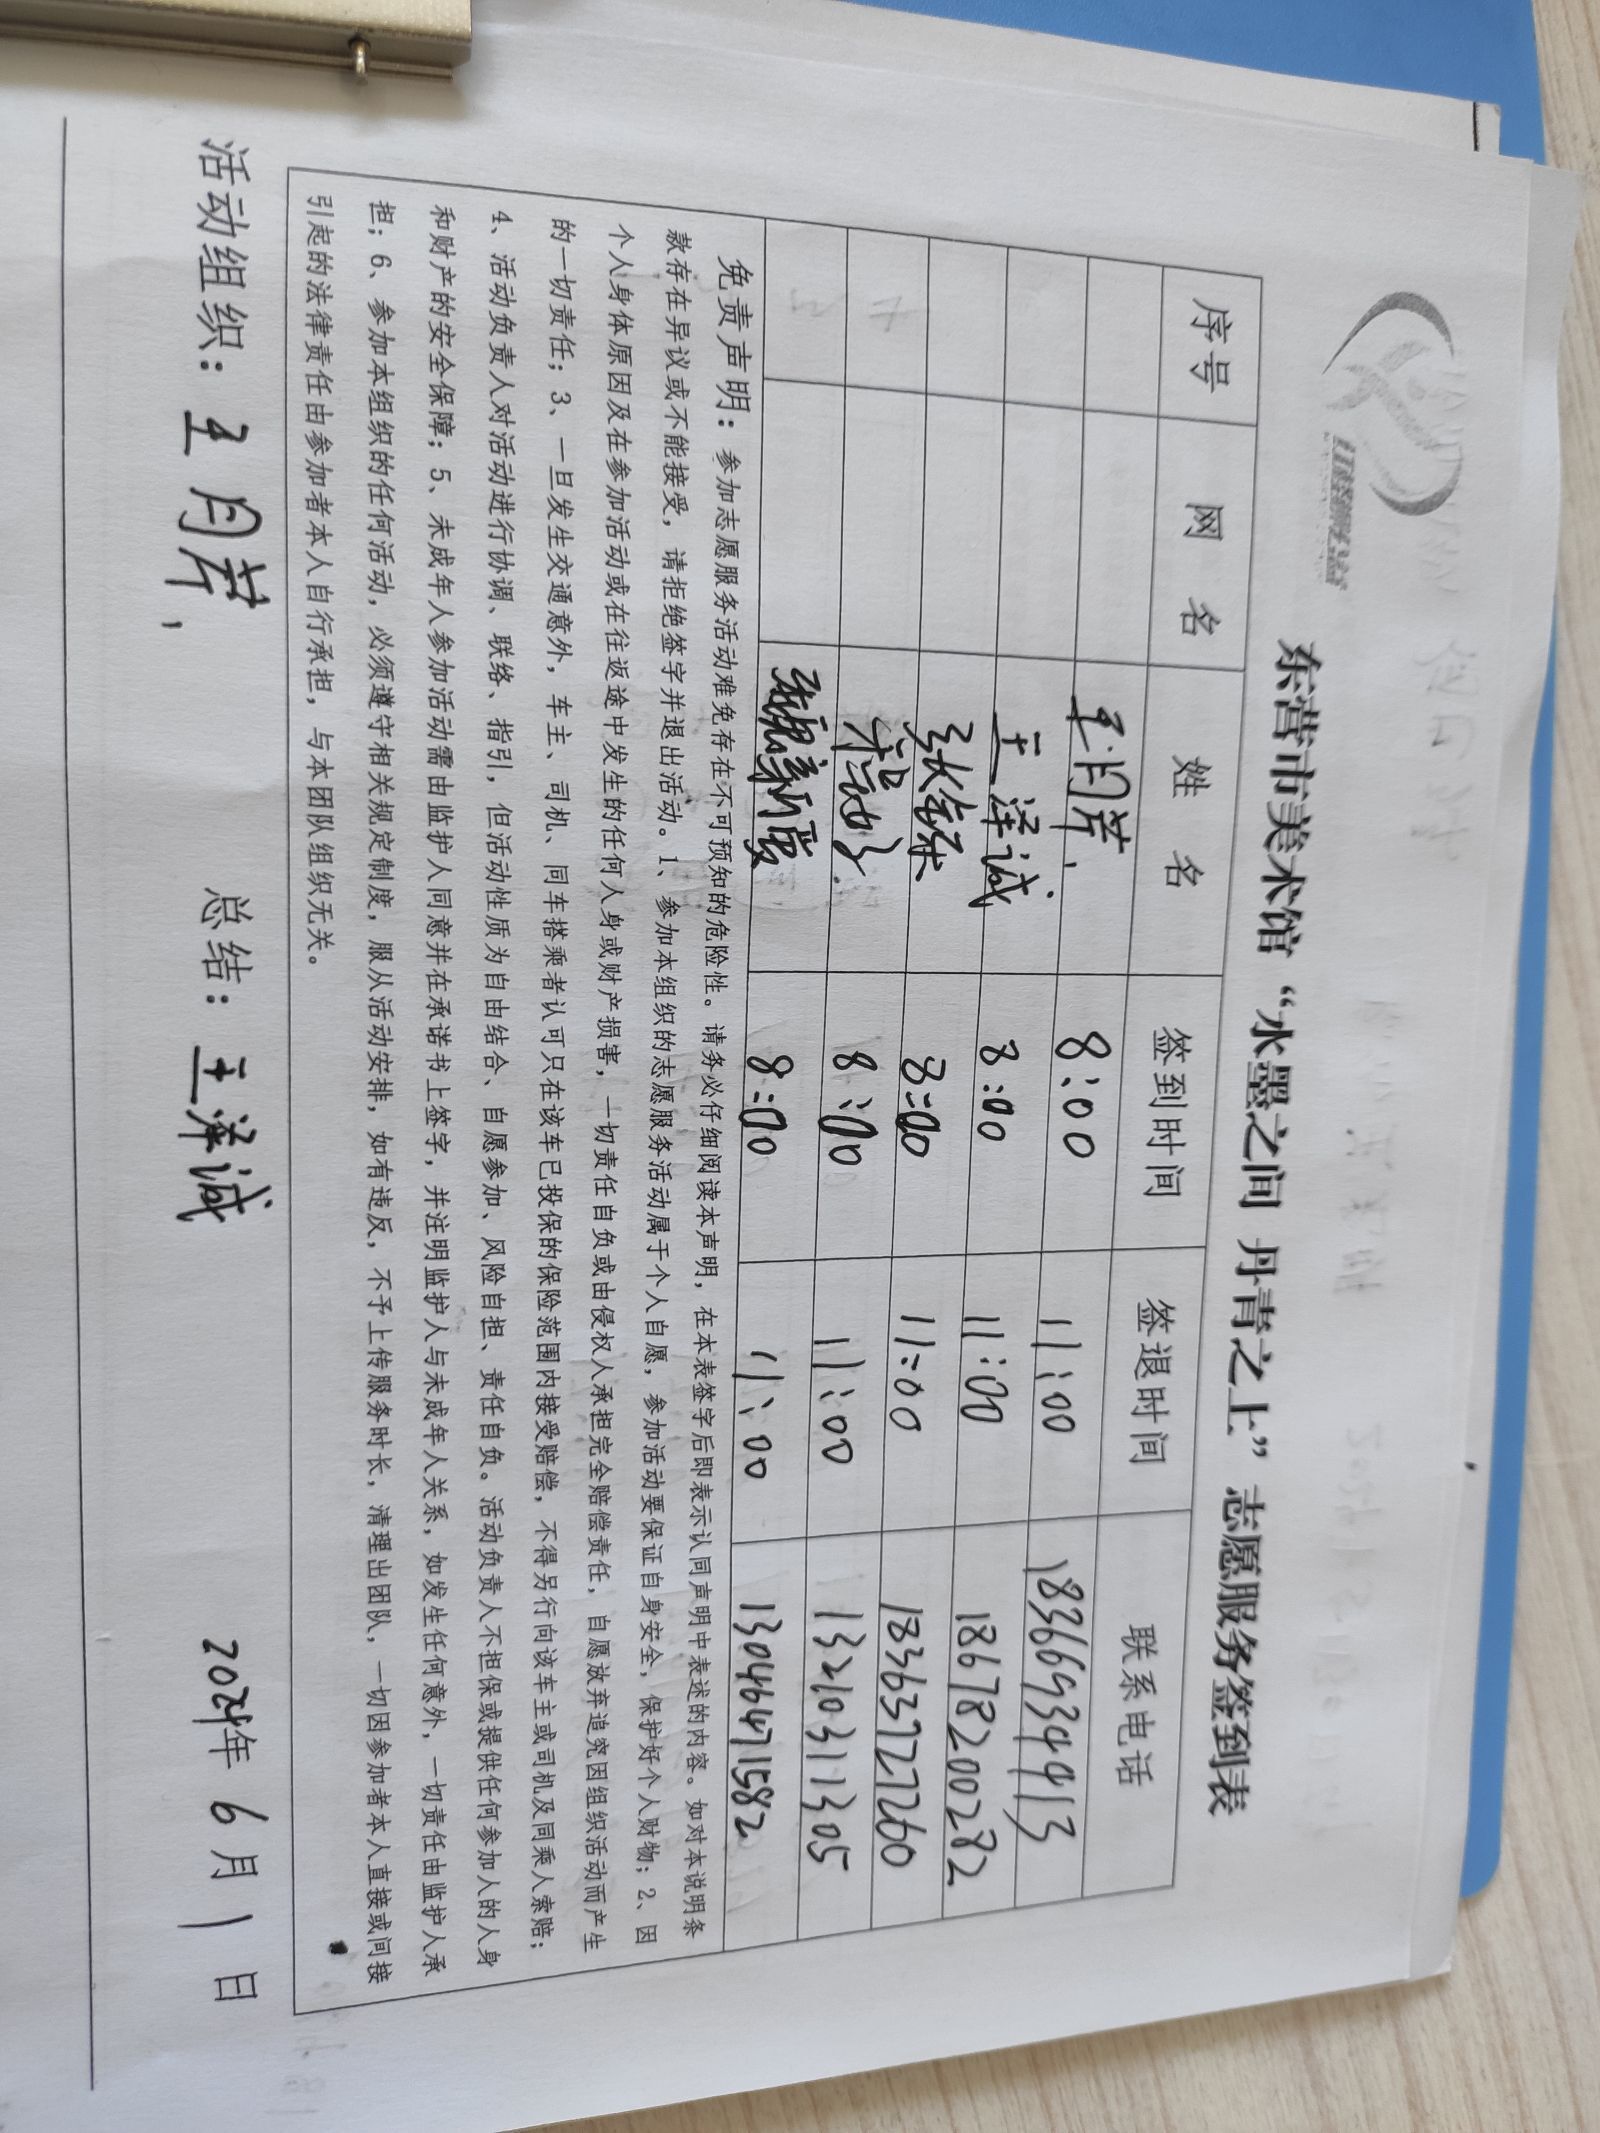 东营市美术馆“水墨之间 丹青之上”志愿服务签到表
序号 网 名 姓 名 签到时间 签退时间 联系电话
王月芹 8:00 11:00 18366934913
王泽诚 8:00 11:00 18678200282
8:00 11:00 18363727260
8:00 11:00 13210311305
8:00 11:00 13046471582
免责声明：参加志愿服务活动难免存在不可预知的危险性。请务必仔细阅读本声明，在本表签字后即表示认同声明中表述的内容。如对本说明条
款存在异议或不能接受，请拒绝签字并退出活动。1、参加本组织的志愿服务活动属于个人自愿，参加活动要保证自身安全，保护好个人财物；2、因
个人身体原因及在参加活动或在往返途中发生的任何人身或财产损害，一切责任自负或由侵权人承担完全赔偿责任，自愿放弃追究因组织活动而产生
的一切责任；3、一旦发生交通意外，车主、司机、同车搭乘者认可只在该车已投保的保险范围内接受赔偿，不得另行向该车主或司机及同乘人索赔；
4、活动负责人对活动进行协调、联络、指引，但活动性质为自由结合、自愿参加、风险自担、责任自负。活动负责人不担保或提供任何参加人的人身
和财产的安全保障；5、未成年人参加活动需由监护人同意并在承诺书上签字，并注明监护人与未成年人关系，如发生任何意外，一切责任由监护人承
担；6、参加本组织的任何活动，必须遵守相关规定制度，服从活动安排，如有违反，不予上传服务时长，清理出团队，一切因参加者本人直接或间接
引起的法律责任由参加者本人自行承担，与本团队组织无关。
活动组织：王月芹 总结：王泽诚 2024年 6月 1日